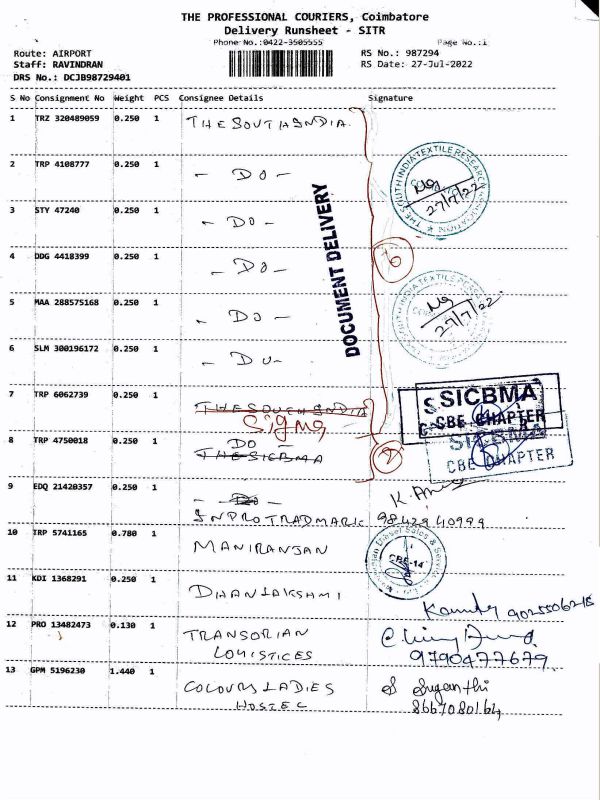 THE PROFESSIONAL COURIERS, Coimbatore
Delivery Runsheet - SITR
Phone No.:0422-3505555 Page No.:1
Route: AIRPORT RS No.: 987294
Staff: RAVINDRAN RS Date: 27-Jul-2022
DRS No.: DCJB98729401
S No Consignment No Weight PCS Consignee Details Signature
1 TRZ 320489059 0.250 1 THE SOUTH INDIA.
2 TRP 4108777 0.250 1 - DO -
THE SOUTH INDIA TEXTILE RESEARCH ASSOCIATION
27/7/22
3 STY 47240 0.250 1 - DO -
DOCUMENT DELIVERY
4 DDG 4418399 0.250 1 - DO -
6
5 MAA 288575168 0.250 1 - DO -
SOUTH INDIA TEXTILE RESEARCH
27/7/22
6 SLM 300196172 0.250 1 - DO -
7 TRP 6062739 0.250 1 THE SOUTH INDIA
Sigma
SICBMA
CBE CHAPTER
8 TRP 4750018 0.250 1 DO
THE SICBMA
2
SICBMA
CBE CHAPTER
9 EDQ 21420357 0.250 1 - DO -
INPROTRADMARK 9842940999
10 TRP 5741165 0.780 1 MANIRANJAN
Diesel Sales &
CBE-14
11 KDI 1368291 0.250 1 DHANLAKSHAMI
9025506215
12 PRO 13482473 0.130 1 TRANSORIAN
LOUISTICES
9790477679
13 GPM 5196230 1.440 1 COLOURS LADIES S Suganthi
HOSTEL 8667080164